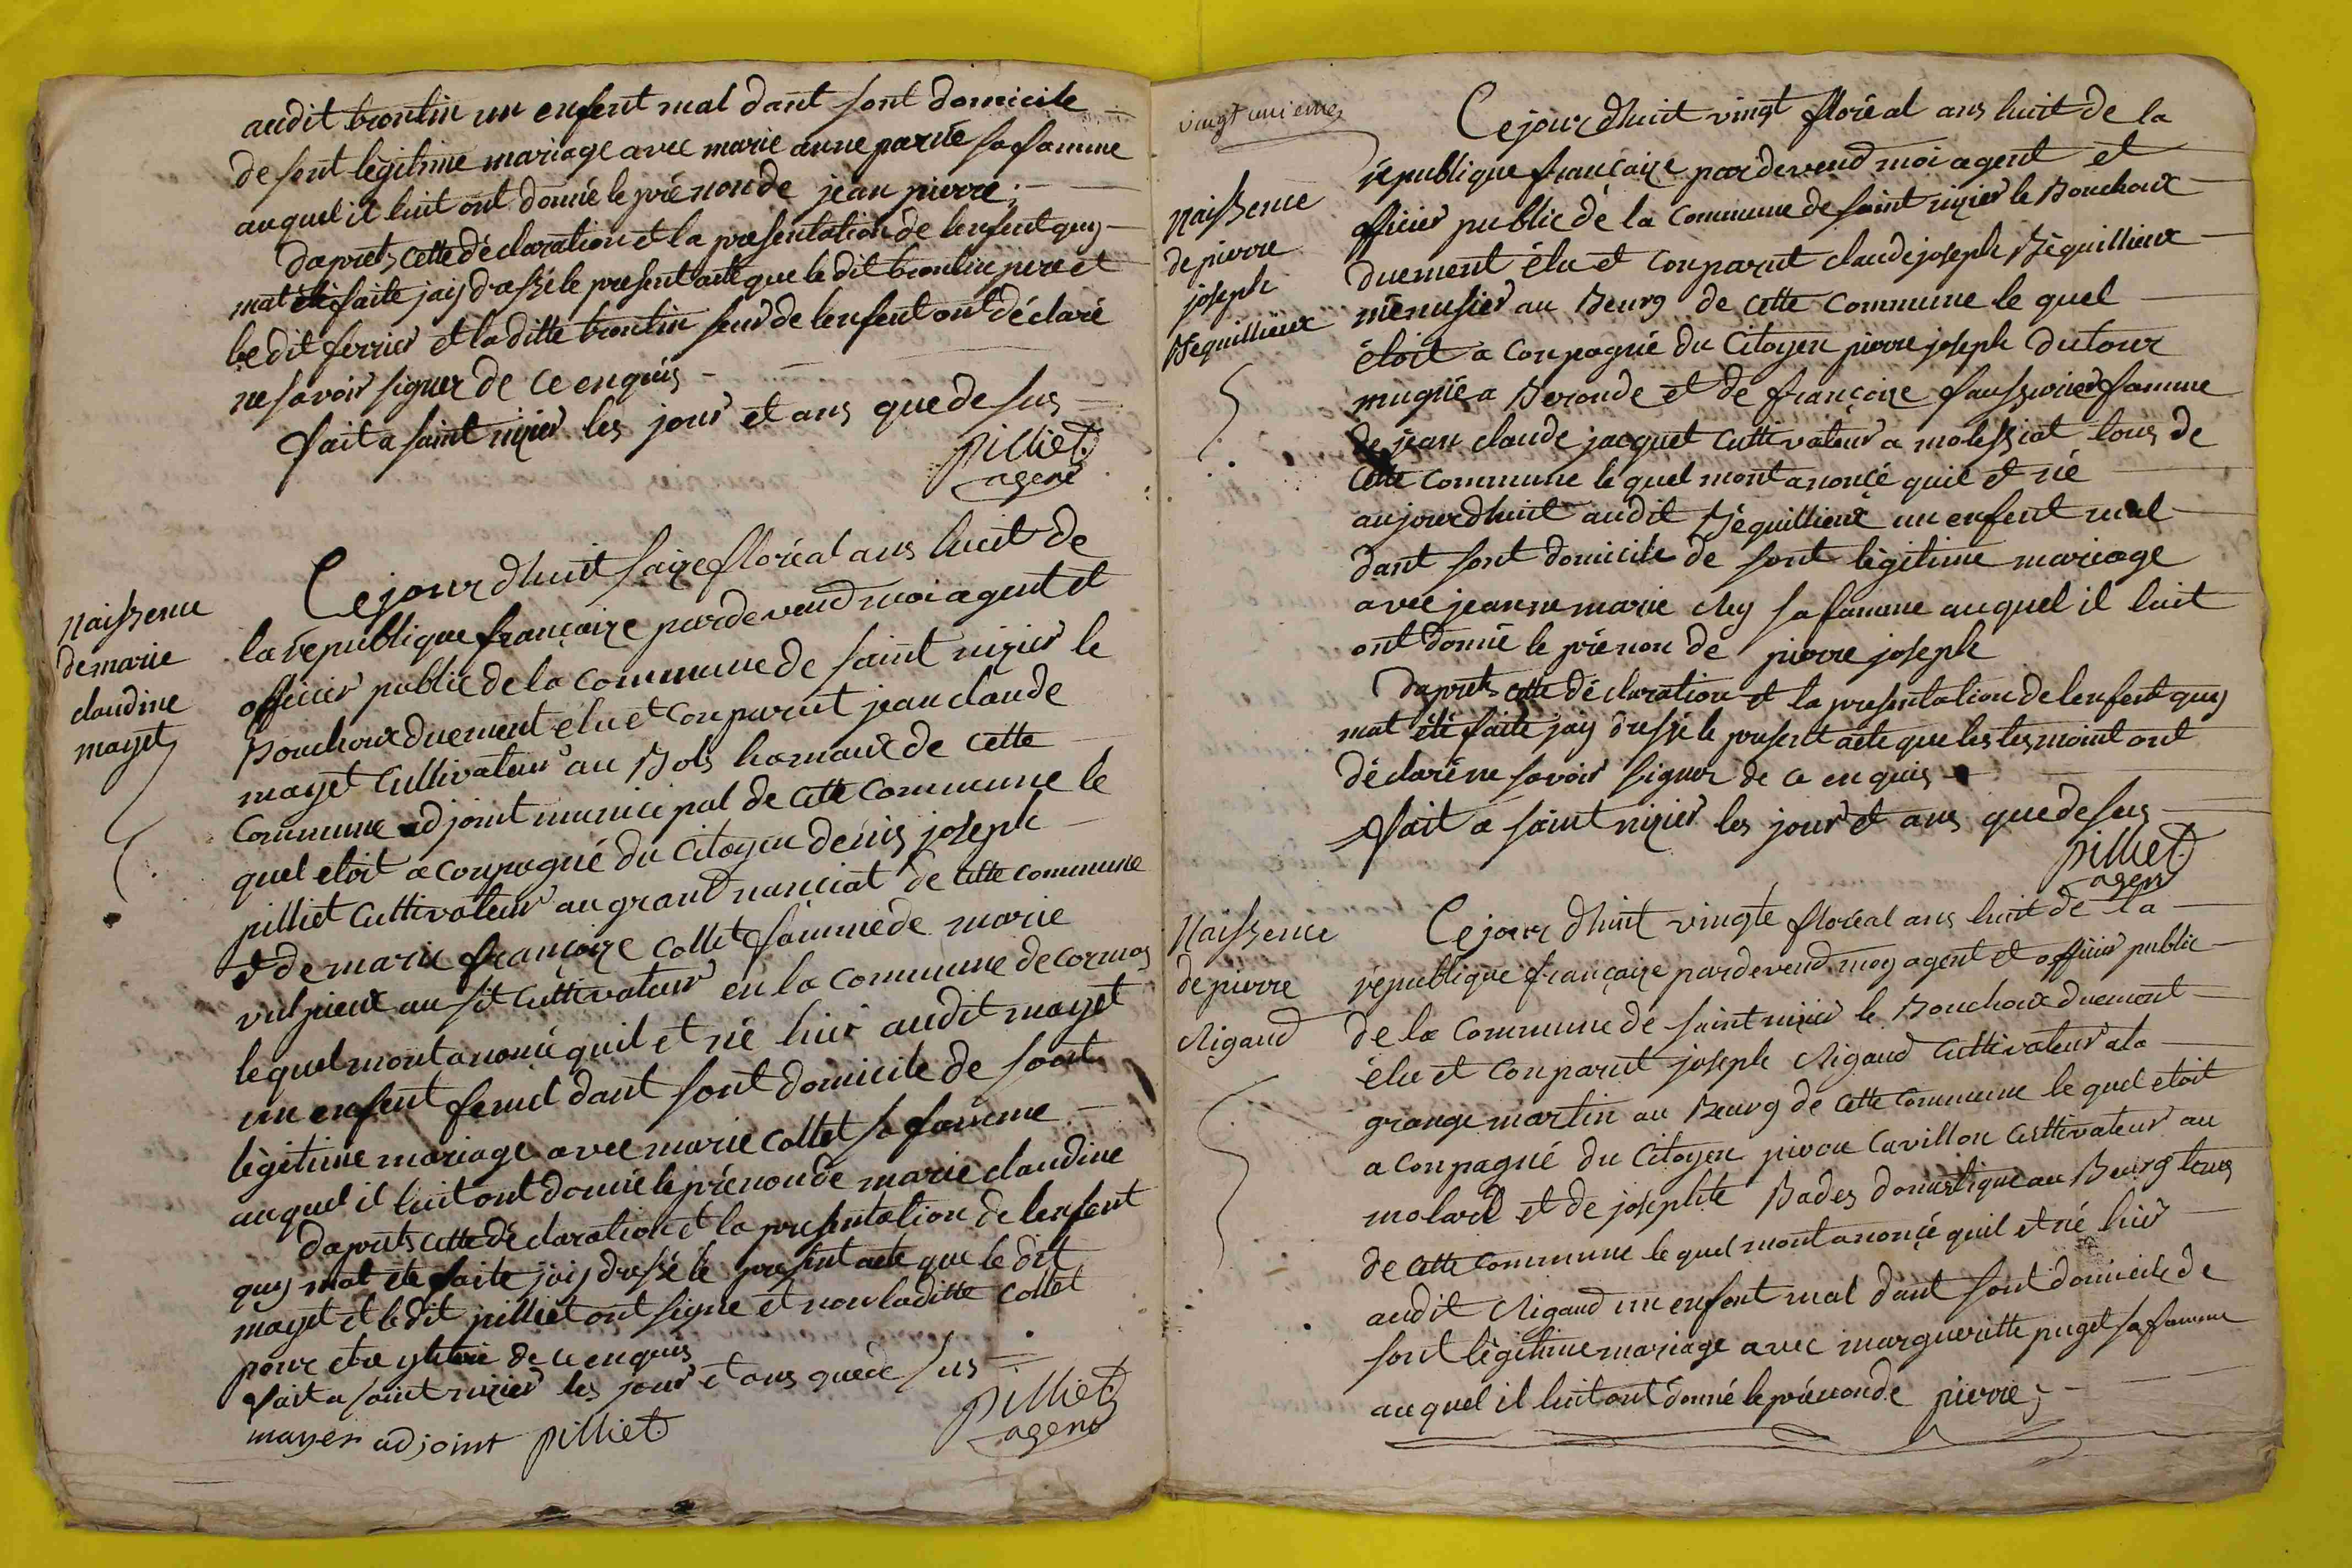 audit brontin un enfent mal dant sont domicile
de sent legitime mariage avec marie anne parné sa famme
auquel il luit ont donné le prénon de jean pierre ;
daprets cette déclaration et la presentation de lenfent quy
mat été faite jay dressé le present acte que le dit brontin pere et
le dit ferrier et laditte brontin seur de lenfent ont déclaré
ne savoir signer de ce enquis
fait a saint nizier les jour et ans que de sus
pilliet
agent
Naissence
de marie
claudine
mayet
Ce jour dhuit saize floréal ans huit de
la république françaize pardevend moi agent et
officier public de la commune de saint nizier le
Bouchoux duement élu et conparut jean claude
mayet cultivateur au Bols hamaux de cette
commune adjoint municipal de cette commune le
quel etoit a conpagné du citoyen denis joseph
pilliet cultivateur au grand nanciat de cette commune
et de marie françoize collet famme de marie
vulpieux ausit cultivateur en la commune de cormos
lequel mont anoncé quil et né hier audit mayet
un enfent femel dant sont domicile de sont
légitime mariage avec marie collet sa famme
auquel il luit ont donné le prénon de marie claudine
daprets cette déclaration et la presentation de lenfent
quy mat été faite jay dressé le present acte que le dit
mayet et ledit pilliet ont signé et non laditte collet
pour etre ylitere de ce enquis
fait a saint nizier les jour et ans que de sus
mayet adjoint pilliet
pilliet
agent
vingt unieme
Naissence
de pierre
joseph
Bequillieux
Ce jour dhuit vingt floréal ans huit de la
république françaize pardevend moi agent et
officier public de la commune de saint nizier le Bouchoux
duement élu et conparut claude joseph Béquillieux
ménusier au Bourg de cette commune le quel
étoit a conpagné du citoyen pierre joseph dutour
mugnié a Beronde et de françoize faussurier famme
de jean claude jacquet cultivateur a molissiat tous de
cette commune le quel mont anoncé quil et né
aujourdhuit audit Béquillieux un enfent mal
dant sont domicile de sont légitime mariage
avec jeanne marie Rey sa famme auquel il luit
ont donné le prénon de pierre joseph
daprets cette déclaration et la presentation de lenfent quy
mat été faite jay dressé le present acte que les tesmoint ont
déclaré ne savoir signer de ce enquis
fait a saint nizier les jour et ans que de sus
pilliet
agent
Naissence
de pierre
Rigaud
Ce jour dhuit vingte floréal ans huit de la
république françaize pardevend moy agent et officier public
de la commune de saint nizier le Bouchoux duement
élu et conparut joseph Rigaud cultivateur ala
grange martin au Bourg de cette commune le quel etoit
a conpagné du citoyen pierre Cavillon cultivateur au
molard et de josephte Bades domestique au Bourg tous
de cette commune le quel mont anoncé quil et né hier
audit Rigaud un enfent mal dant sont domicile de
sont légitime mariage avec margueritte puget sa famme
auquel il luit ont donné le prénon de pierre ;